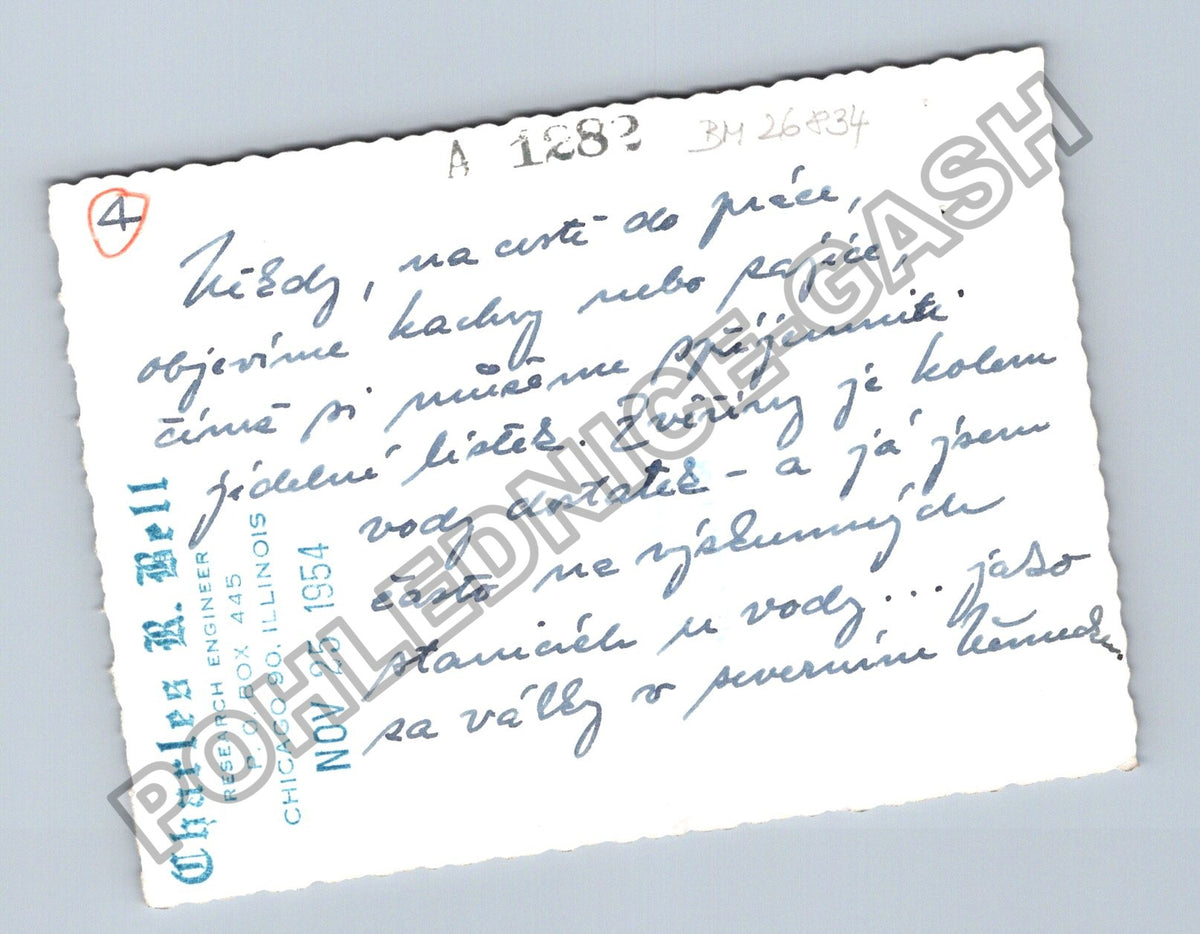 4
A 1282
BM 26834
Někdy, na cestě do práce,
objevíme kachny nebo zajíce,
čímž si můžeme zpříjemniti
jídelní lístek. Zvěřiny je kolem
vody dostatek - a já jsem
často na výzkumných
stanicích u vody... jako
za války v severním Německu.
Charles R. Bell
RESEARCH ENGINEER
P. O. BOX 445
CHICAGO 90, ILLINOIS
NOV 25 1954
POHLEDNICE-GASH